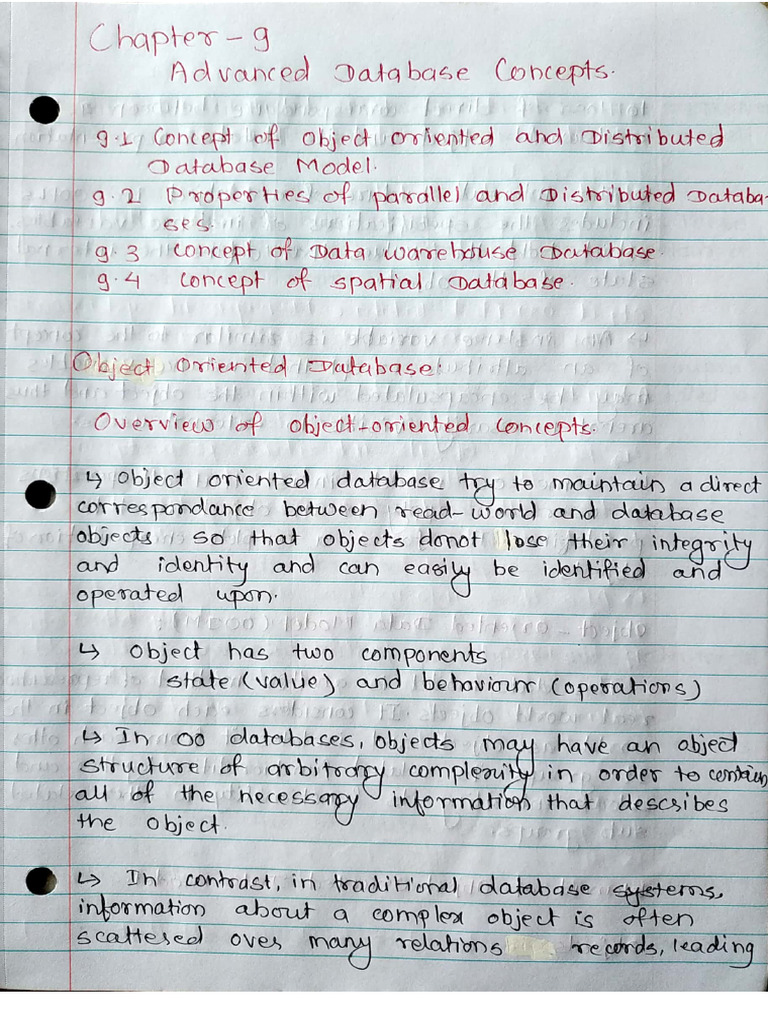 Chapter - 9
Advanced Database Concepts.
9.1 Concept of Object oriented and Distributed
Database Model.
9.2 Properties of parallel and Distributed Databa-
ses.
9.3 Concept of Data warehouse Database.
9.4 Concept of spatial Database.
Object Oriented Database:
Overview of Object-oriented Concepts.
↳ Object oriented database try to maintain a direct
correspondance between read-world and database
objects so that objects donot lose their integrity
and identity and can easily be identified and
operated upon.
↳ Object has two components
state (value) and behaviour (operations)
↳ In OO databases, objects may have an object
structure of arbitrary complexity in order to contain
all of the necessary information that describes
the object.
↳ In contrast, in traditional database systems,
information about a complex object is often
scattered over many relations records, leading